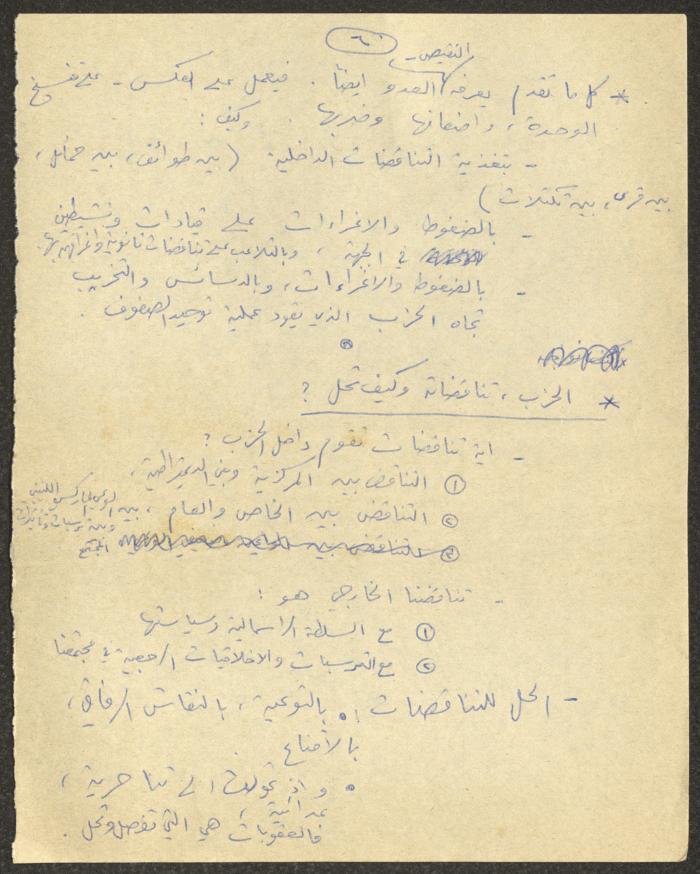 ٦
النقيض -
* كل ما تقدم يعرفه العدو ايضاً . فيعمل على العكس - على تفسيخ
الوحدة ، واضعافها وضربها . وكيف :
- بتغذية التناقضات الداخلية ( بين طوائف ، بين حمائل ،
بين قرى ، بين تكتلات )
- بالضغوط والاغراءات على قيادات ونشيطين
في الجبهة ، وبالتلاعب على تناقضات ثانوية واغرائهم بها
- بالضغوط والاغراءات ، وبالدسائس والتخريب
تجاه الحزب الذي يقود عملية توحيد الصفوف .
* الحزب ، تناقضاته وكيف تحل ؟
- اية تناقضات تقوم داخل الحزب ؟
① التناقض بين المركزية وبين الديمقراطية ،
② التناقض بين الخاص والعام ، بين الوعي الماركسي اللينيني
وبين ترسبات وتأثيرات
المجتمع
③ التناقض بين
- تناقضنا الخارجي هو :
① مع السلطة الرأسمالية وسياستها
② مع الترسبات والاخلاقيات الرجعية في مجتمعنا
- الحل للتناقضات : • بالتوعية ، بالنقاش الرفاقي ،
بالاقناع
• واذ تحولت الى تناحرية ،
عدائية ،
فالعقوبات هي التي تفصل وتحل .